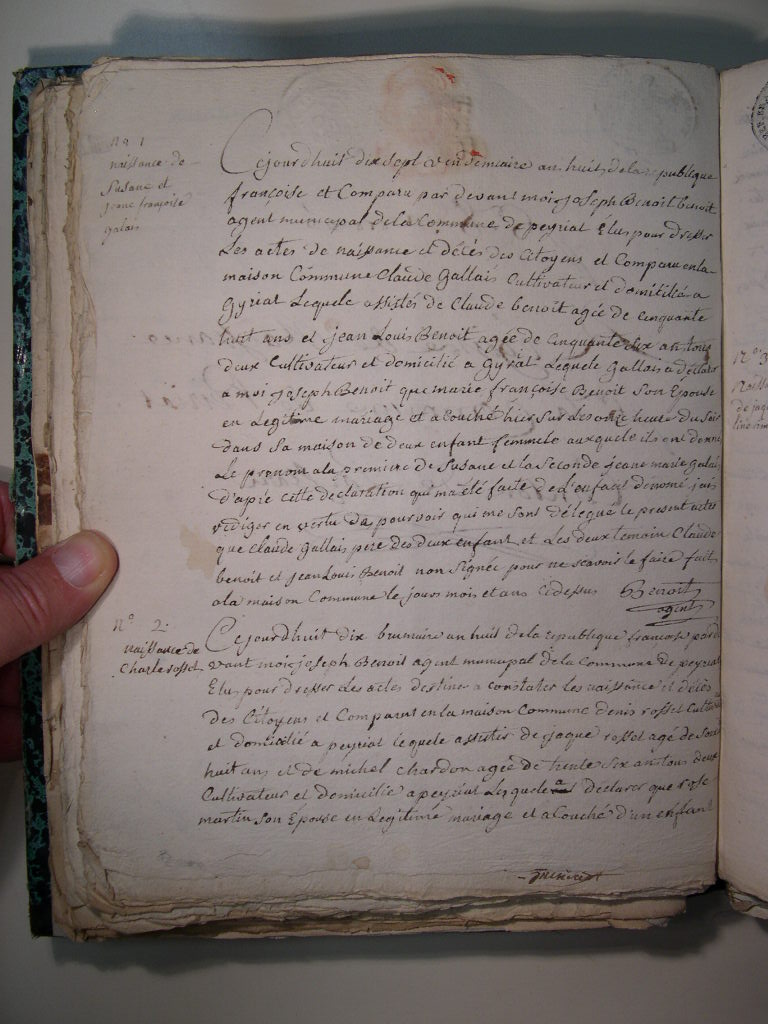 N.° 1
naissance de
Susane et
jeane françoise
galais
Cejourdhuit dix sept vendémiaire an huit de la republique
françoise et Comparu par devant moi joseph Benoit benoit
agent municipal de la Commune de peyriat Élus pour dresser
Les actes de naissance et décés des Citoyens et Comparu en la
maison Commune Claude Gallais Cultivateur et domicilié a
Gyriat Lequele assistés de Claude benoit agée de cinquante
huit ans et jean Louis Benoit agée de Cinquante six an tous
deux Cultivateur et domicilié a Gyriat Lequele Gallais a déclare
a moi joseph Benoit que marie françoise Benoit Son Epouse
en Legitime mariage et acouché hier Sur Les onze heure du Soir
dans Sa maison de deux enfant femmele auxquele ils ont donné
Le prenom a la premiere de Susane et la Seconde jeane marie galai
d'apré cette declaration qui ma été faite de d'enfans dénomé jai
rediger en vertu du pourvoir qui me Sont délégué le present actes
que Claude Gallais pere des deux enfant et Les deux temoin Claude
benoit et jean Louis Benoit non Signée pour ne scavoir le faire fait
a la maison Commune le jours mois et ans Cidessus Benoit
agent
N° 2
naissance de
Charle rosset
Cejourdhuit dix brumaire an huit de la republique françoise par d
vant moi joseph Benoit agent municipal de la Commune de peyriat
Elus pour dresser Les actes destiner a constater Les naissance et décès
des Citoyens et Comparut en la maison Commune denis rosset Cultiva
et domicilié a peyriat lequele assister de jaque rosset agé de
huit ans et de michel chardon agée de trente six an tous deux
Cultivateur et domicilié a peyriat Lesquele a déclarer que rose
martin Son Epouse en Legitime mariage et acouché d'un enfant
N° 3